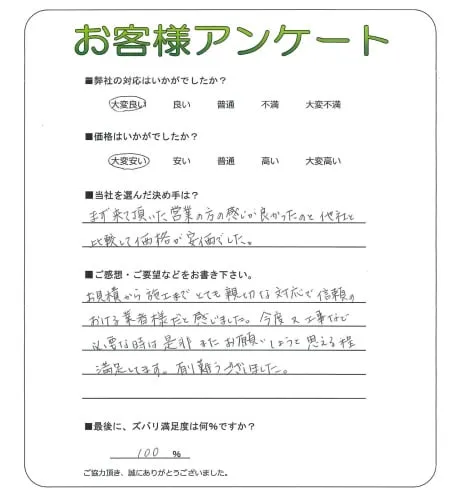 お客様アンケート
■弊社の対応はいかがでしたか?
大変良い 良い 普通 不満 大変不満
■価格はいかがでしたか?
大変安い 安い 普通 高い 大変高い
■当社を選んだ決め手は?
まず来て頂いた営業の方の感じが良かったのと他社と
比較して価格が安価でした。
■ご感想・ご要望などをお書き下さい。
お見積から施工までとても親切な対応で信頼の
おける業者様だと感じました。今度又工事などで
必要な時は是非またお願いしようと思える程
満足してます。有り難うございました。
■最後に、ズバリ満足度は何%ですか?
100 %
ご協力頂き、誠にありがとうございました。